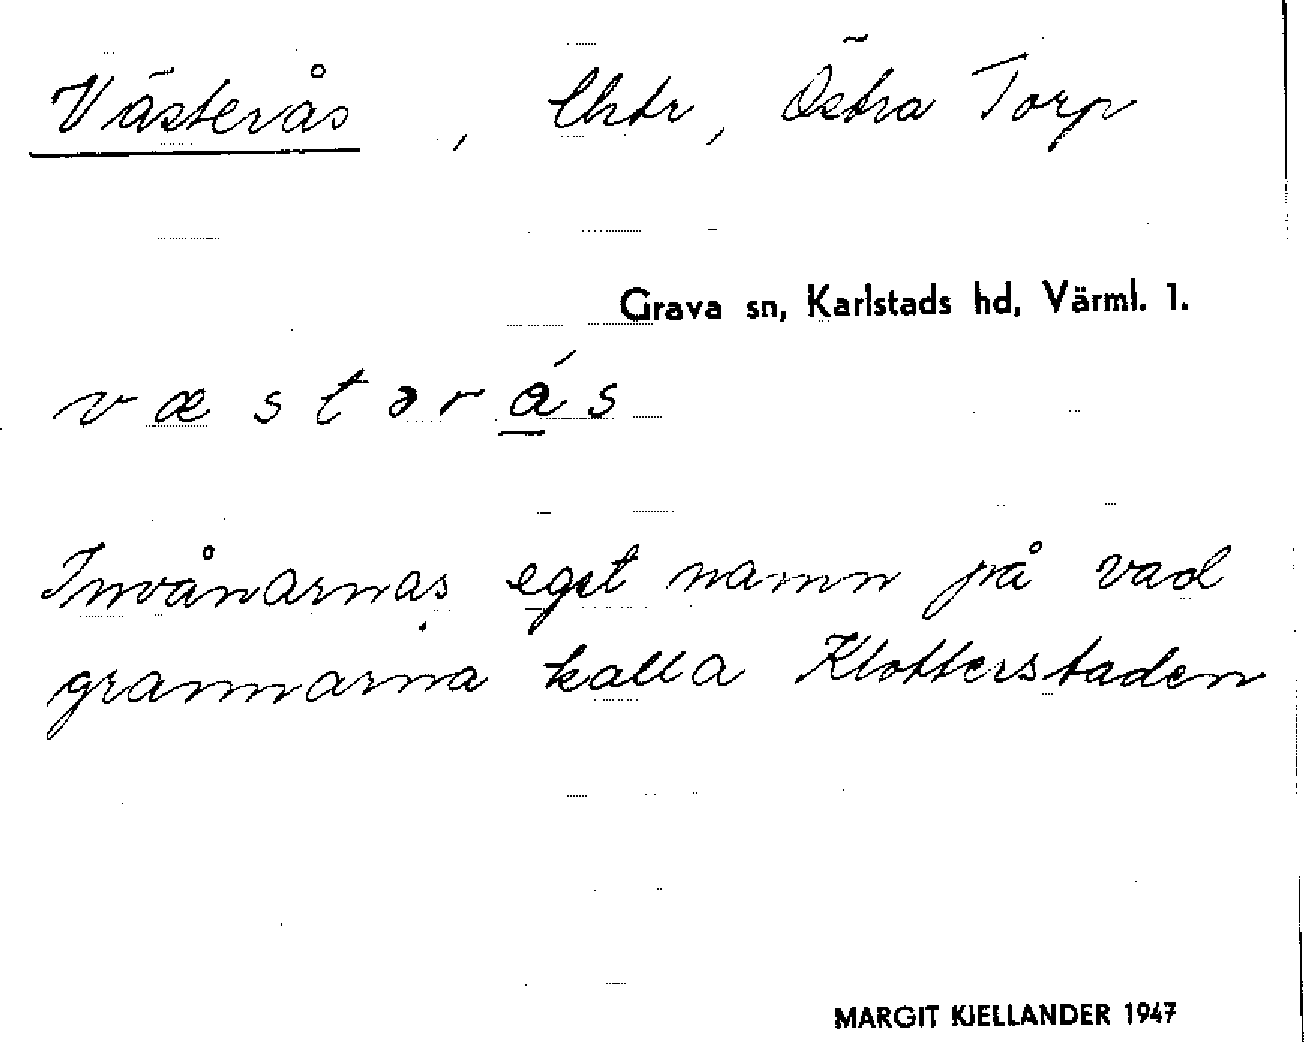 Västerås, lhtr, Östra Torp
Grava sn, Karlstads hd, Värml. 1.
væstərás
Invånarnas eget namn på vad
grannarna kalla Klotterstaden
MARGIT KJELLANDER 1947